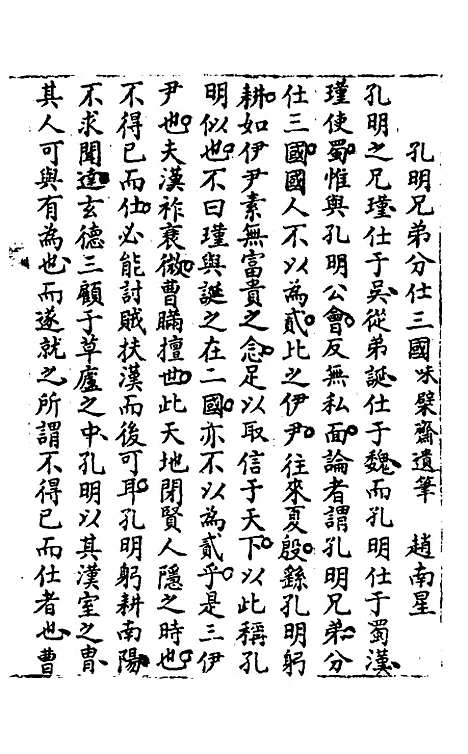 孔明兄弟分仕三國味檗齋遺筆 趙南星
孔明之兄瑾仕于吳從弟誕仕于魏而孔明仕于蜀漢
瑾使蜀惟與孔明公會反無私面論者謂孔明兄弟分
仕三國國人不以為貳比之伊尹往來夏殷繇孔明躬
耕如伊尹素無富貴之念足以取信于天下以此稱孔
明似也不曰瑾與誕之在二國亦不以為貳乎是三伊
尹也夫漢祚衰微曹瞞擅世此天地閉賢人隱之時也
不得已而仕必能討賊扶漢而後可耳孔明躬耕南陽
不求聞達玄德三顧于草廬之中孔明以其漢室之胄
其人可與有為也而遂就之所謂不得已而仕者也曹